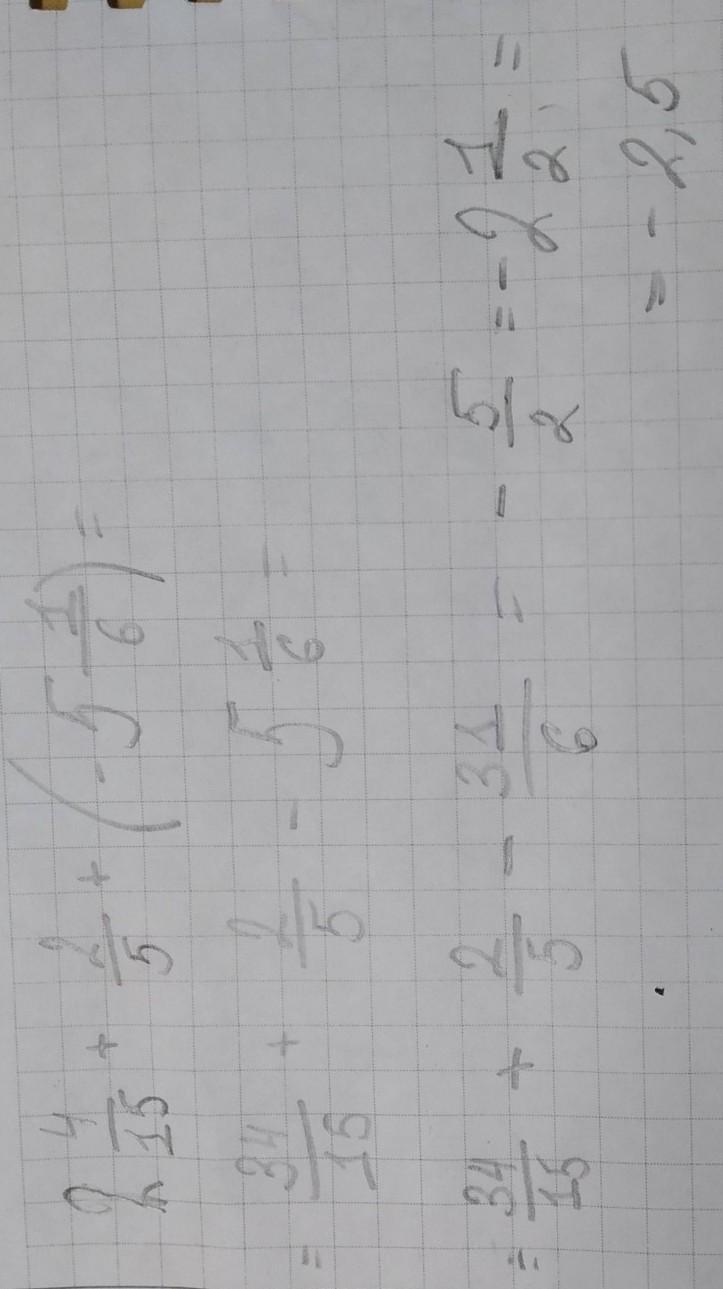 2 4/15 + 2/5 + (-5 1/6) =
= 34/15 + 2/5 - 5 1/6 =
= 34/15 + 2/5 - 31/6 = - 5/2 = - 2 1/2 =
= - 2,5